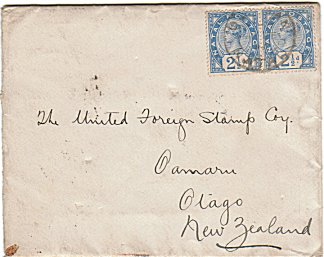 2½d
2½d
The United Foreign Stamp Coy.
Oamaru
Otago
New Zealand